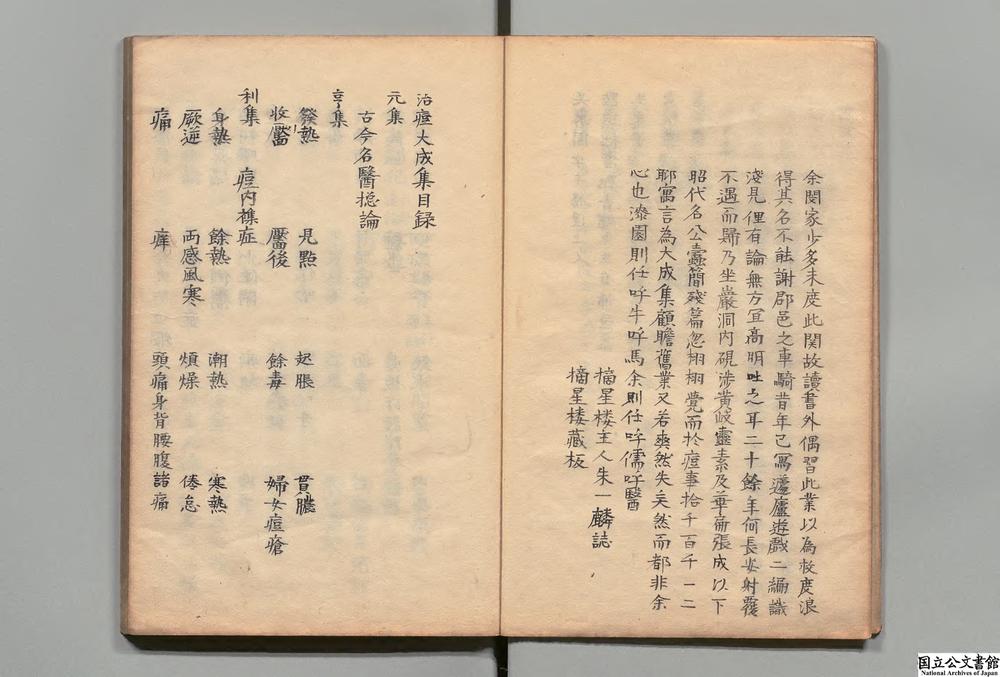 余閱家少多未度此関故讀書外偶習此業以為救度浪
得其名不能謝郡邑之車騎昔年已寓蘧廬遊戲二編識
淺見俚有論無方冝高明吐之耳二十餘年何長安射覆
不遇而歸乃坐巖洞內硯涉黄岐靈素及華扁張成以下
昭代名公蠧簡殘篇忽栩栩覺而於痘事拾千百千一二
耶寓言為大成集顧瞻舊業又若爽然失矣然而都非余
心也漆園則任呼牛呼馬余則任呼儒呼醫
摘星楼主人朱一麟誌
摘星楼藏板
治痘大成集目録
元集
古今名醫捴論
亨集
發熱 見㸃 起脹 貫膿
收靨 靨後 餘毒 婦女痘瘡
利集 痘内襍症
身熱 餘熱 潮熱 寒熱
厥逆 両感風寒 煩燥 倦怠
痛 痒 頭痛身背腰腹諸痛
国立公文書館
National Archives of Japan